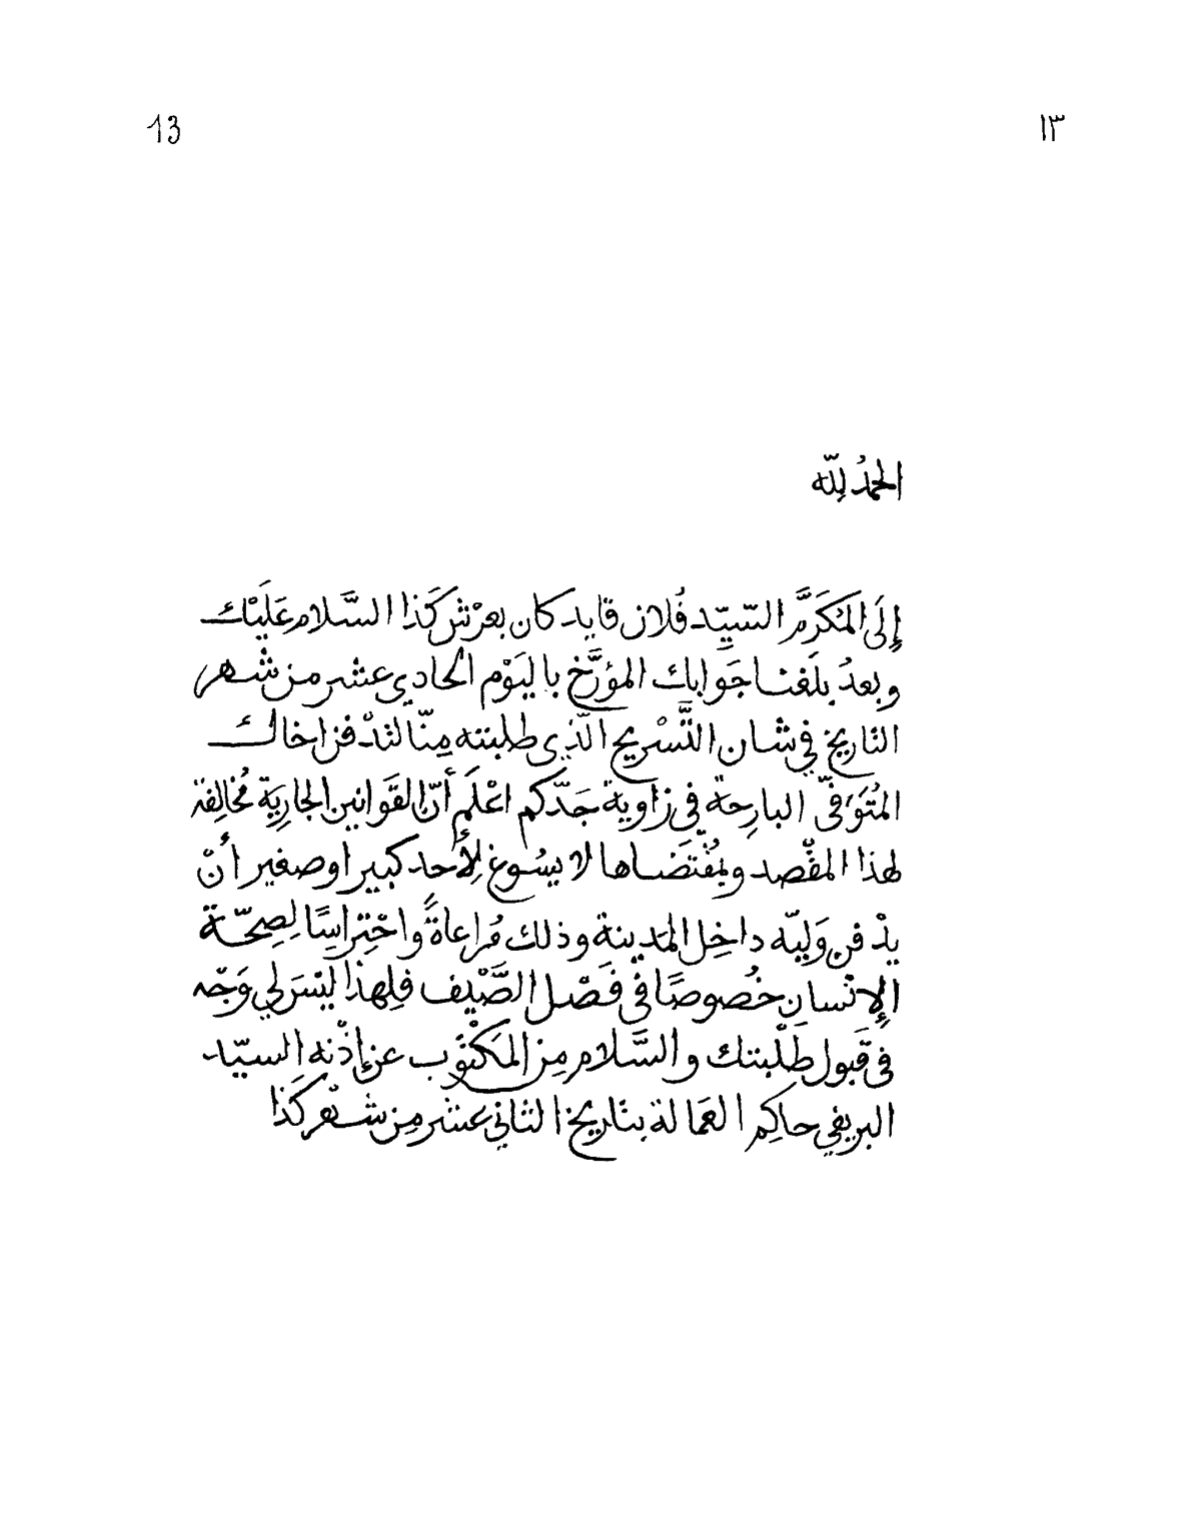 13 ١٣
الحمدُ لِلّه
إِلَى المُكَرَّم السّيِّد فُلان قايد كان بعرْش كَذا السَّلام عَلَيْك
وبعدُ بلَغنا جَوابك المؤرَّخ باليَوْم الحادي عشر من شهر
التاريخ في شان التَّسْريح الّذي طلبته مِنّا لتدْفن اخاك
المُتَوَفّى البارِحة في زاوية جَدّكم اعْلَم أنّ القَوانين الجارِيَة مُخالِفة
لهذا المقْصد وبمُقْتَضاها لا يسُوغ لِأحد كبير او صغير أنْ
يدْفن وَلِيّه داخِل المَدينة وذلك مُراعاةً واحْتِراسًا لِصِحّة
الإنْسان خُصوصًا في فَصْل الصَّيْف فلِهذا ليْسَ لي وَجْه
في قَبول طَلْبتك والسَّلام مِن المَكْتوب عن إذْنه السيّد
البريفي حاكِم العَمالة بتاريخ الثاني عشر مِن شهْر كَذا